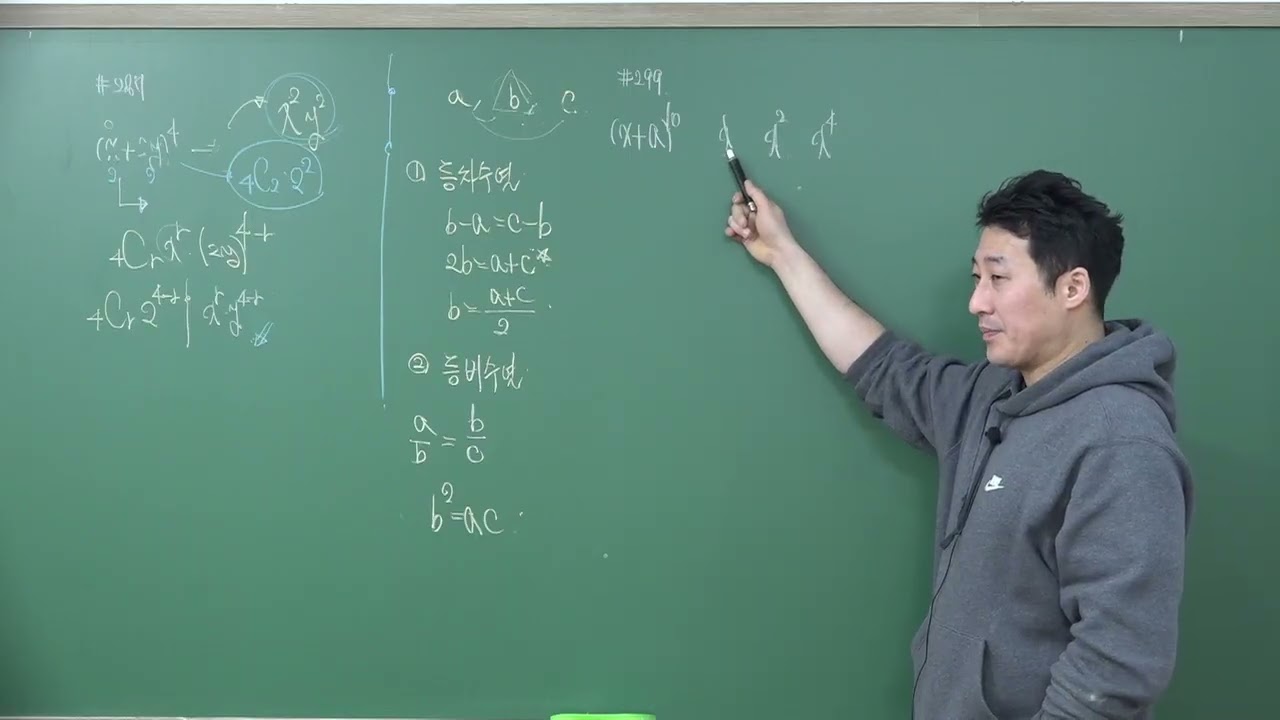 x²y²
₄C₂·2²
₄Cᵣxʳ·(2y)⁴⁻ʳ
₄Cᵣ2⁴⁻ʳ xʳ·y⁴⁻ʳ
a, b, c
① 등차수열
b-a=c-b
2b=a+c
b=a+c/2
② 등비수열
a/b=b/c
b²=ac
#299
(x+a)¹⁰ x x² x⁴